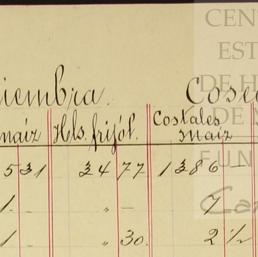 CEN
EST
DE H
DE
FUN
Car
iembra. Cosec
maíz Hls. frijól. Costales maíz
531 34 77 1386 —
1. - " - 7
1 " 30. 2 ½